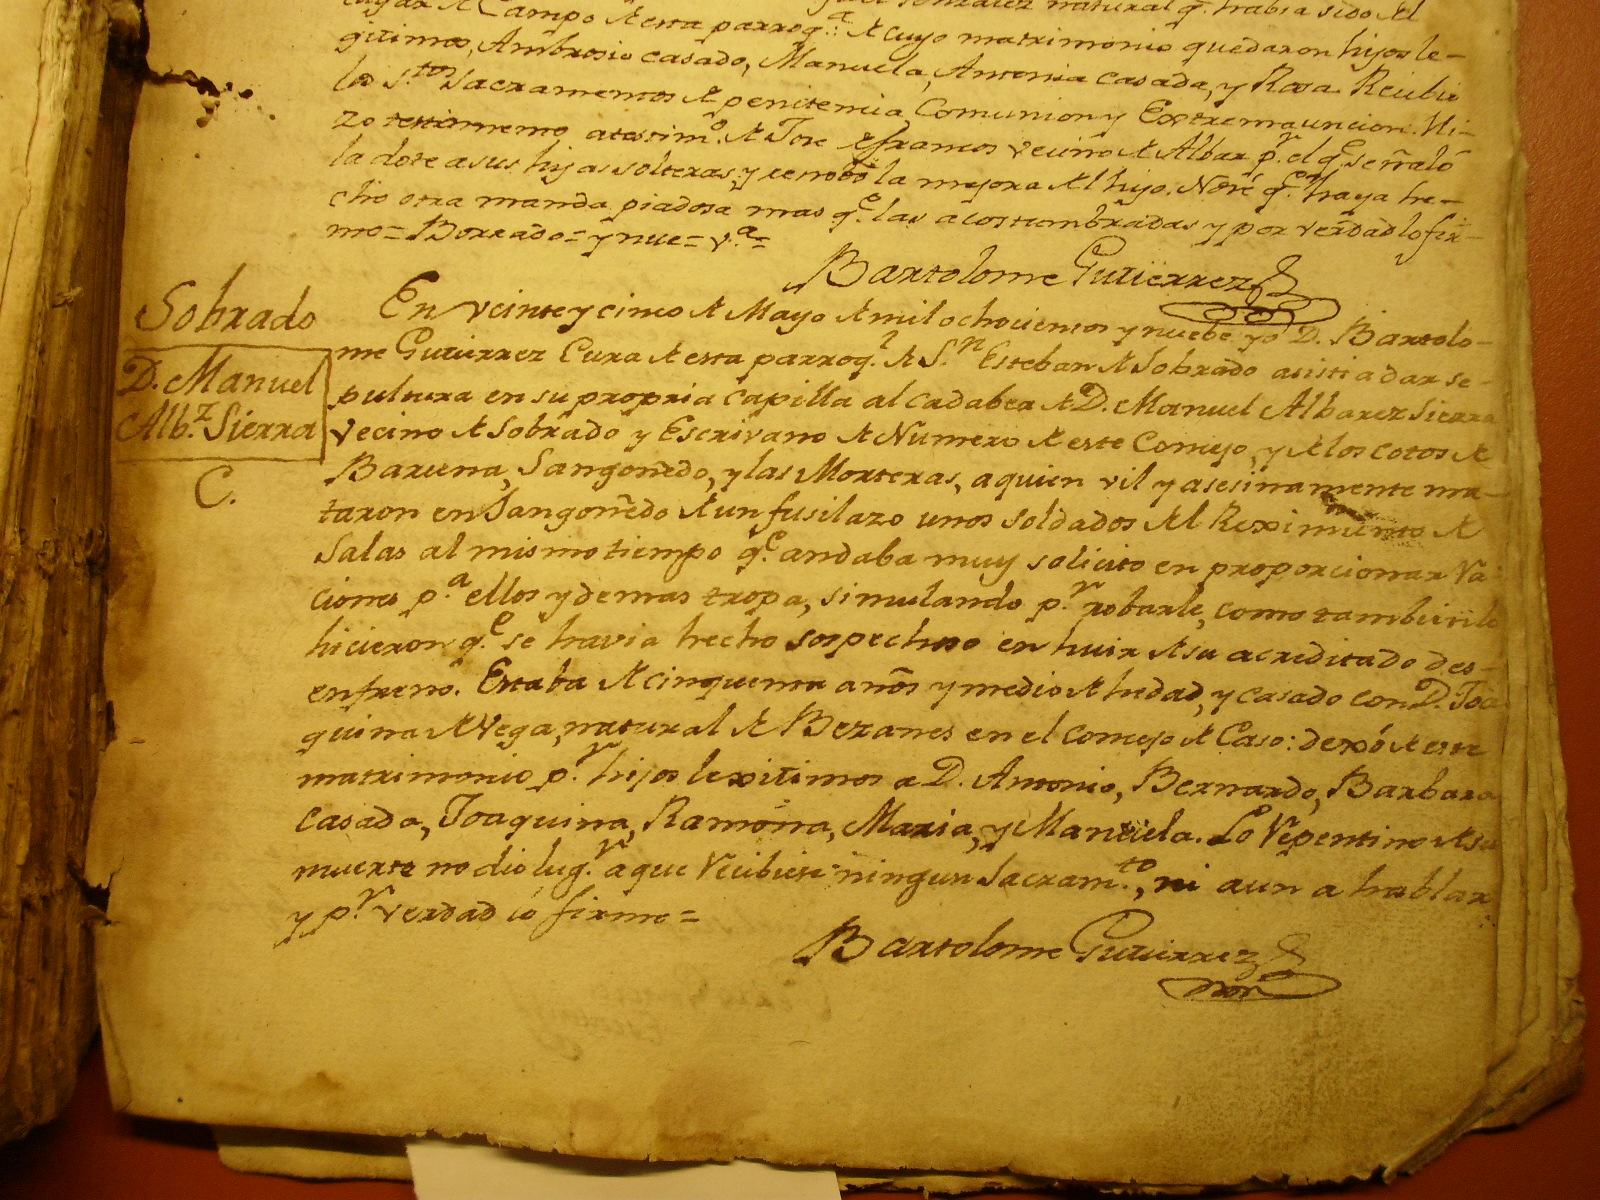 lugar de Campo de esta parroq.ª de cuyo matrimonio quedaron hijos le-
gitimos, Ambrosio casado, Manuela, Antonia casada, y Rosa. Recibio
los S.tos Sacramentos de penitencia Comunion y Extremauncion. Hi-
zo testamento a testim.o de Jose de framos vecino de Albar p.r el q.e señaló
la dote a sus hijas solteras, y renobó la mejora del hijo. No sé q.e haya he-
cho otra manda piadosa mas q.e las acostumbradas y por verdad lo fir-
mo = Borrado = y nue = v.a =
Bartolome Gutierrez
Sobrado
D. Manuel
Alb.z Sierra
C.
En veinte y cinco de Mayo de mil ochocientos y nuebe yo D. Bartolo-
me Gutierrez Cura de esta parroq.l de S.n Esteban de Sobrado asisti a dar se-
pultura en su propria capilla al cadaber de D. Manuel Albarez Sierra
Vecino de Sobrado y Escrivano de Numero de este Concejo, y de los cotos de
Barcena, Sangoñedo, y las Morteras, a quien vil y asesinamente ma-
taron en Sangoñedo de un fusilazo unos soldados del Reximiento de
Salas al mismo tiempo q.e andaba muy solicito en proporcionar Ra-
ciones p.a ellos y demas tropa, simulando p.r robarle, como tambien lo
hicieron q.e se havia hecho sospechoso en huir de su acreditado des-
enfreno. Estaba de cinquenta años y medio de hedad, y casado con D. Joa-
quina de Vega, natural de Bezanes en el concejo de Caso: dexó de este
matrimonio p.r hijos lexitimos a D. Antonio, Bernardo, Barbara
casada, Joaquina, Ramona, Maria, y Manuela. Lo Repentino de su
muerte no dio lug.r a que Recibiese ningun Sacram.to, ni aun a hablar
y p.r verdad lo firmo =
Bartolome Gutierrez